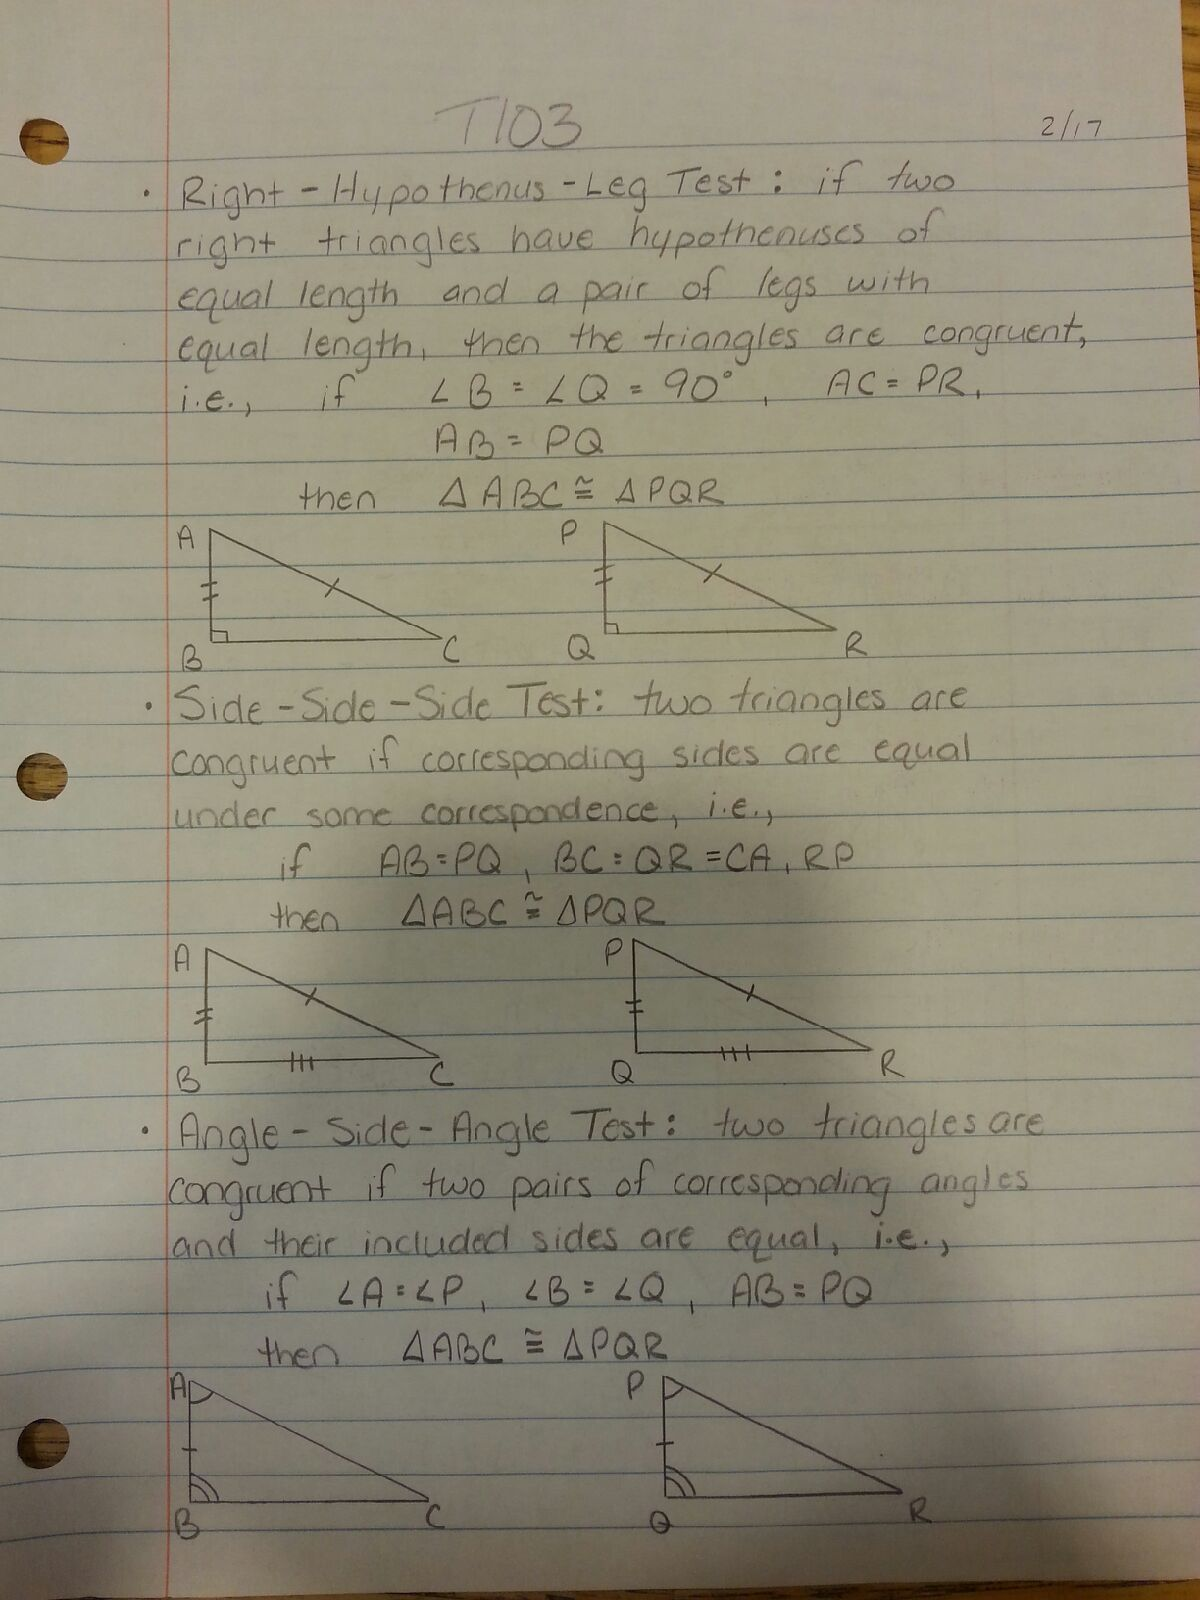 T103
2/17
· Right-Hypothenus-Leg Test: if two
right triangles have hypothenuses of
equal length and a pair of legs with
equal length, then the triangles are congruent,
i.e., if ∠B = ∠Q = 90°, AC = PR,
AB = PQ
then △ABC ≅ △PQR
A P
B C Q R
· Side-Side-Side Test: two triangles are
congruent if corresponding sides are equal
under some correspondence, i.e.,
if AB = PQ, BC = QR = CA, RP
then △ABC ≅ △PQR
A P
B C Q R
· Angle-Side-Angle Test: two triangles are
congruent if two pairs of corresponding angles
and their included sides are equal, i.e.,
if ∠A = ∠P, ∠B = ∠Q, AB = PQ
then △ABC ≅ △PQR
A P
B C Q R